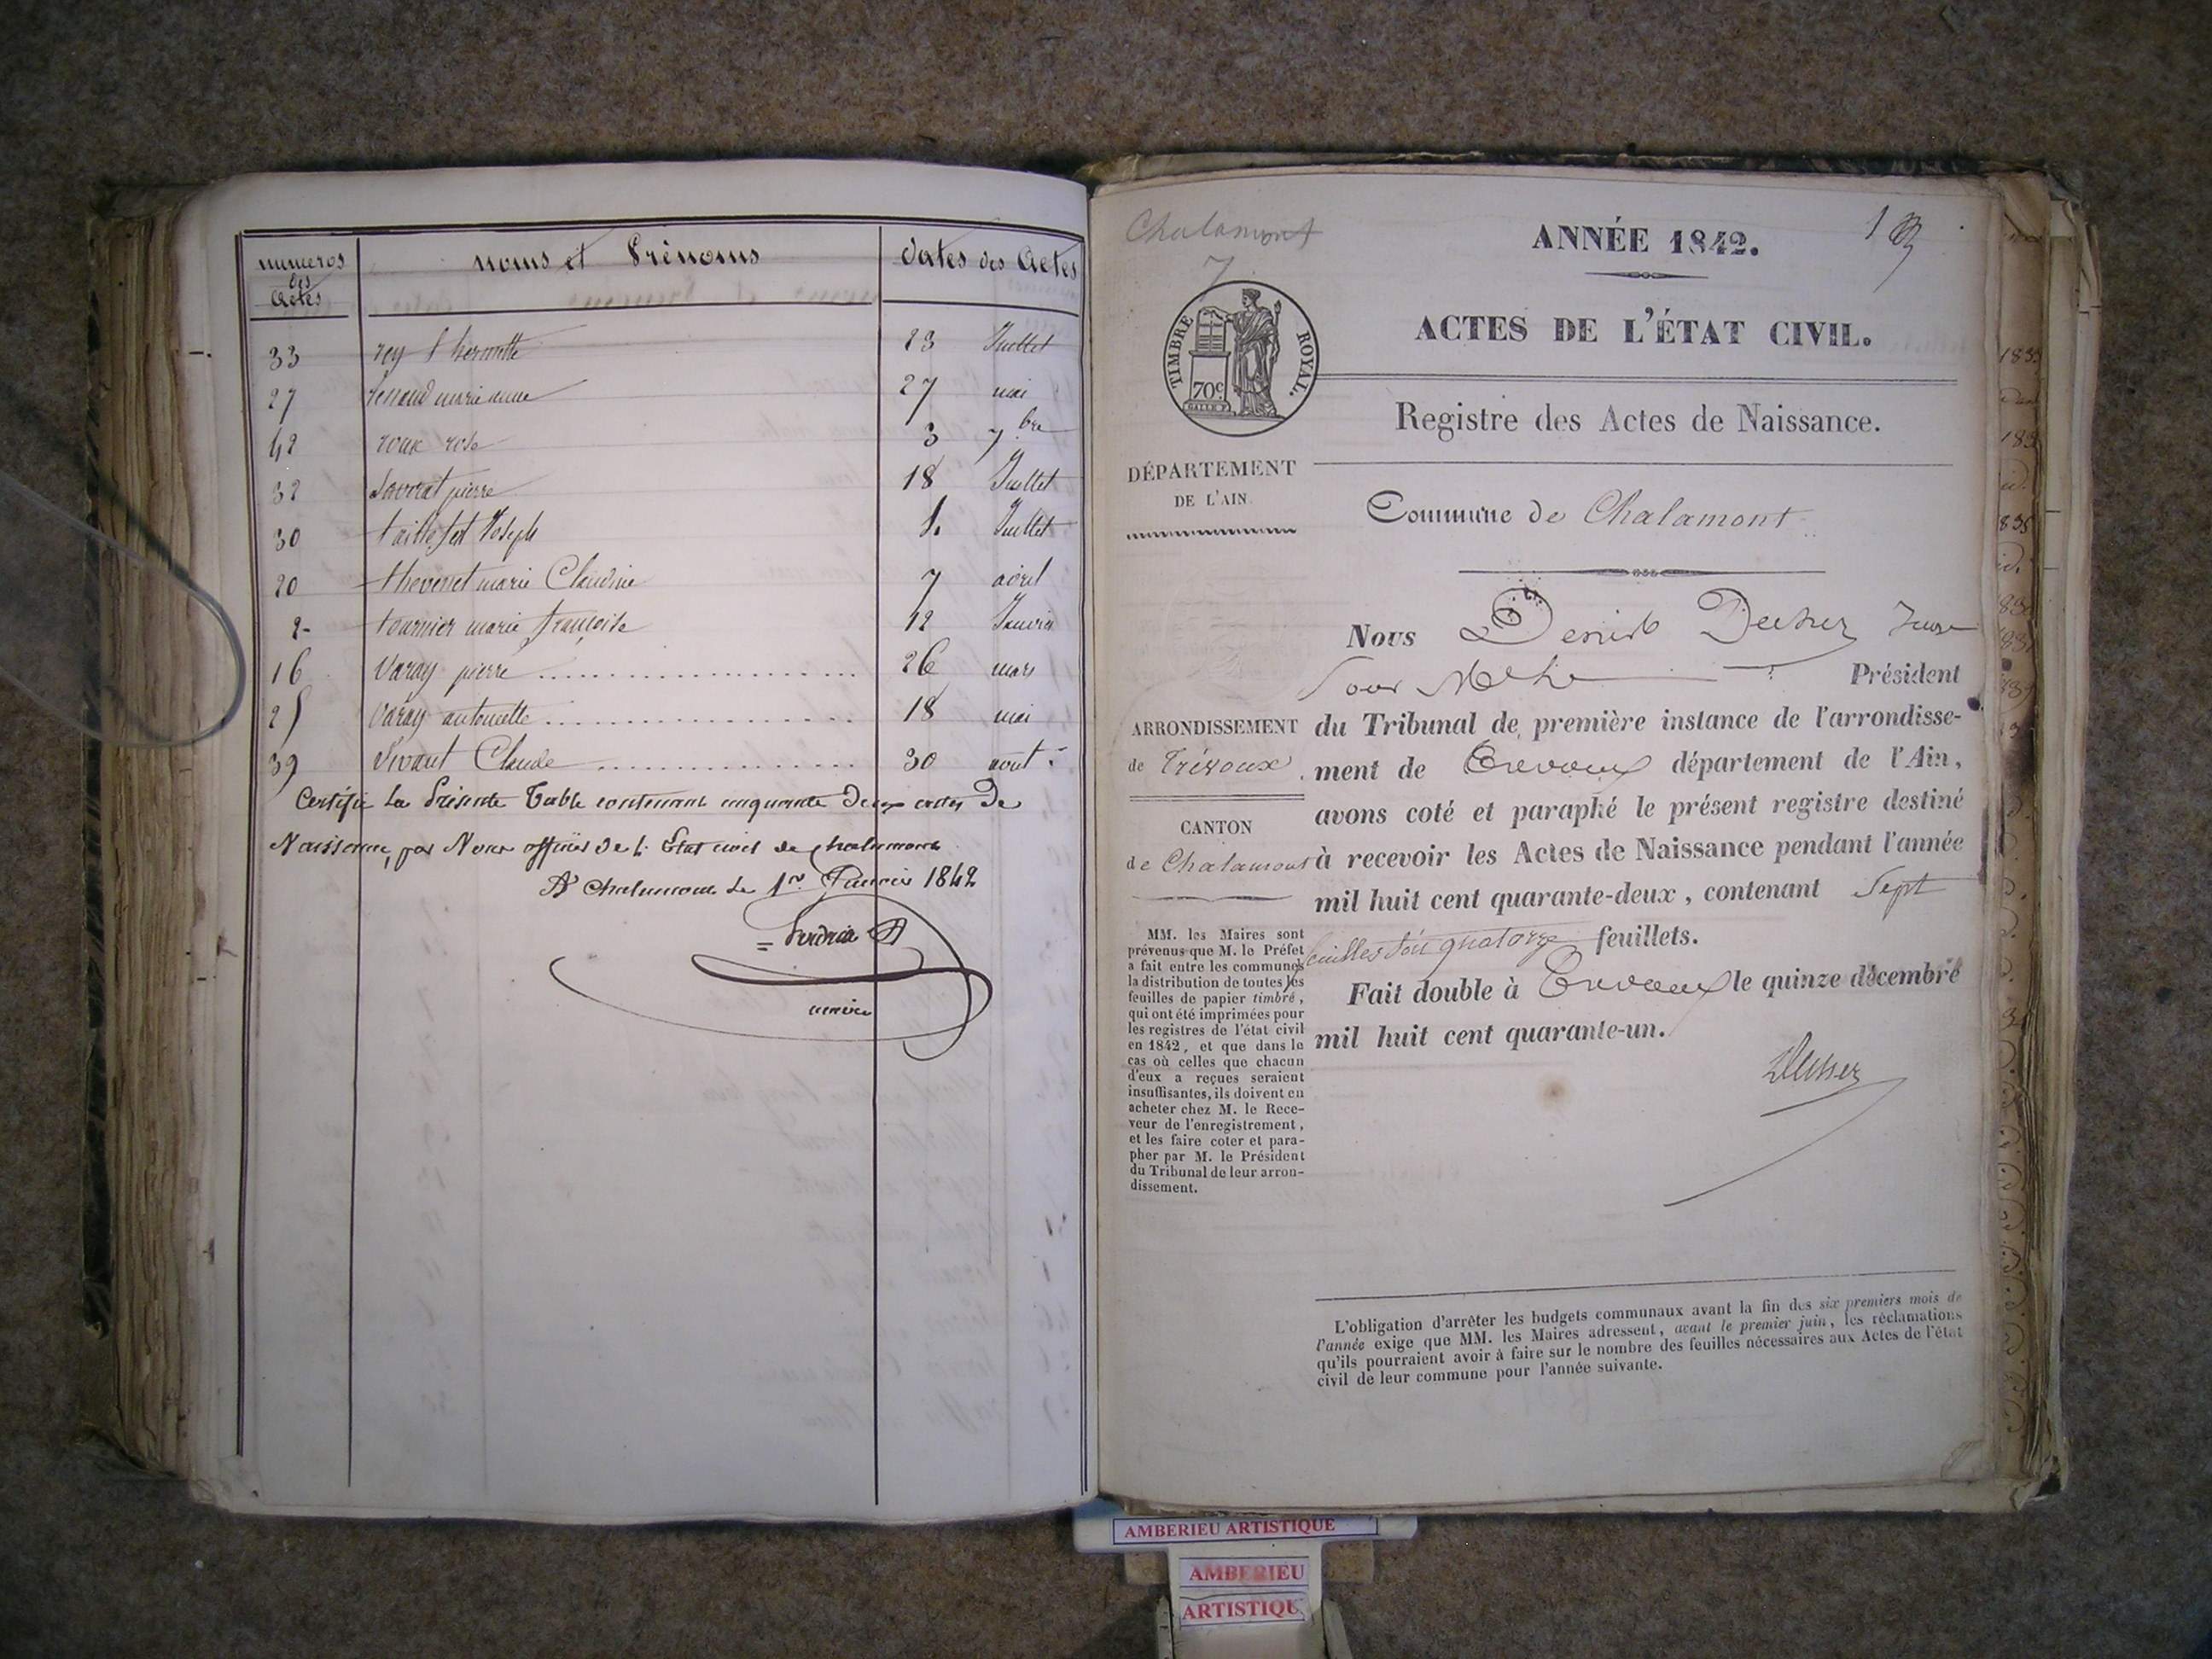 numeros des Actes
noms et Prénoms
dates des Actes
33 rey 23 Juillet
27 marie anne 27 mai
42 roux rose 3 7.bre
32 Savorat pierre 18 Juillet
30 Joseph 1. Juillet
20 thevenet marie Claudine 7 avril
2- tournier marie françoise 12 Janvier
16 Varay pierre 26 mars
25 Varay antoinette 18 mai
39 Vivant Claude 30 aout
Certifié la Présente Table contenant cinquante Deux actes De
Naissance, par Nous officier De l'Etat civil de chalamont
A chalamont le 1er Janvier 1842
maire
Chalamont
7
TIMBRE ROYAL.
70c
ANNÉE 1842.
1
ACTES DE L'ÉTAT CIVIL.
Registre des Actes de Naissance.
DÉPARTEMENT
DE L'AIN
Commune de Chalamont
Nous Denis Juge
Président
ARRONDISSEMENT
de Trévoux
CANTON
de Chalamont
du Tribunal de première instance de l'arrondisse-
ment de Trevoux département de l'Ain,
avons coté et paraphé le présent registre destiné
à recevoir les Actes de Naissance pendant l'année
mil huit cent quarante-deux, contenant Sept
feuilles soit quatorze feuillets.
Fait double à Trevoux le quinze décembre
mil huit cent quarante-un.
MM. les Maires sont
prévenus que M. le Préfet
a fait entre les communes
la distribution de toutes les
feuilles de papier timbré,
qui ont été imprimées pour
les registres de l'état civil
en 1842, et que dans le
cas où celles que chacun
d'eux a reçues seraient
insuffisantes, ils doivent en
acheter chez M. le Rece-
veur de l'enregistrement,
et les faire coter et para-
pher par M. le Président
du Tribunal de leur arron-
dissement.
L'obligation d'arrêter les budgets communaux avant la fin des six premiers mois de
l'année exige que MM. les Maires adressent, avant le premier juin, les réclamations
qu'ils pourraient avoir à faire sur le nombre des feuilles nécessaires aux Actes de l'état
civil de leur commune pour l'année suivante.
AMBERIEU ARTISTIQUE
AMBERIEU
ARTISTIQU